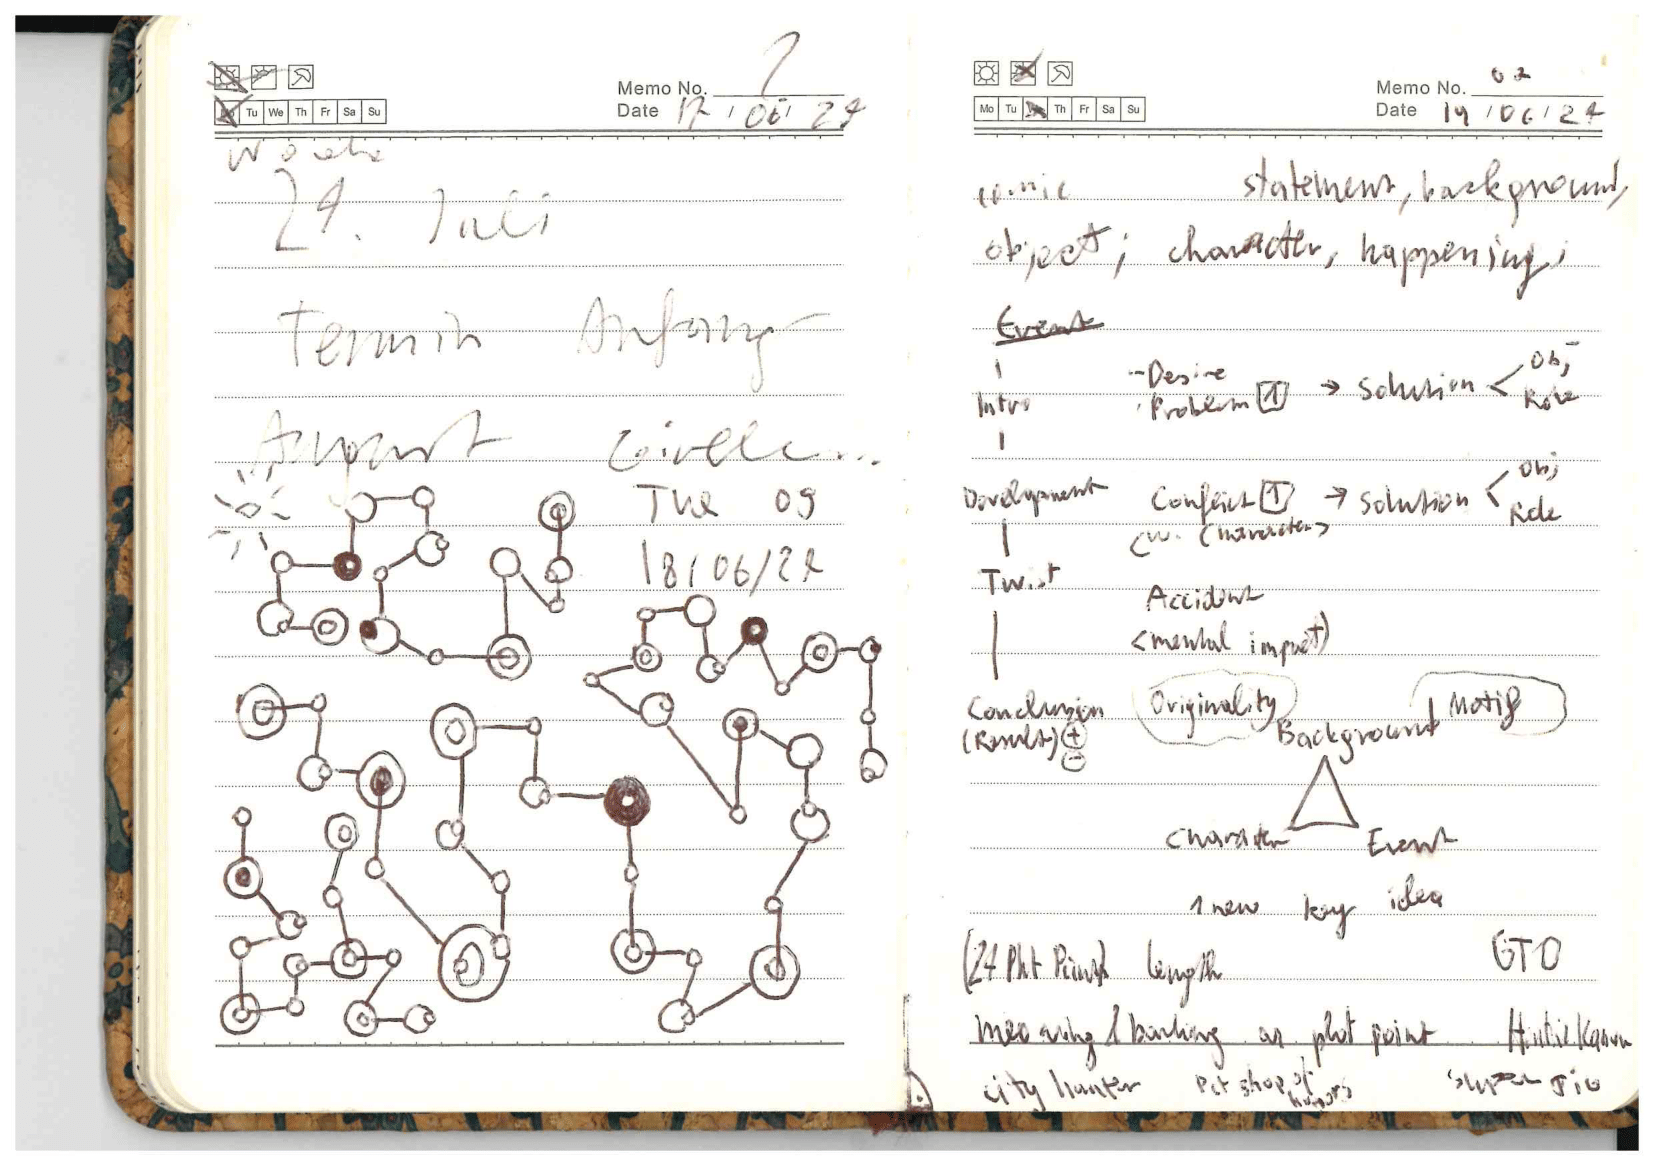 Memo No. ?
Mo Tu We Th Fr Sa Su
Date 17/06/24
Woche
24. Juli
Termin Anfang
August
Tue 09
18/06/24
Memo No. 02
Mo Tu We Th Fr Sa Su
Date 19/06/24
comic statement, background,
object; character, happening;
Event
Intro
- Desire
- Problem 1 → solution < Obj, Role
Development
Conflict 1 → solution < Obj, Role
(w. Characters)
Twist
Accident
(mental impact)
Conclusion
(Result) + -
Originality
Motif
Background
Character
Event
1 new key idea
(24 Plot Points) length
GTO
meaning & barking as plot point
city hunter
Pet shop of horrors